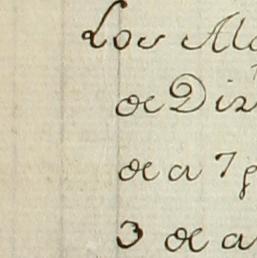 Los Al
de Diz
de a 7 p
3 de a